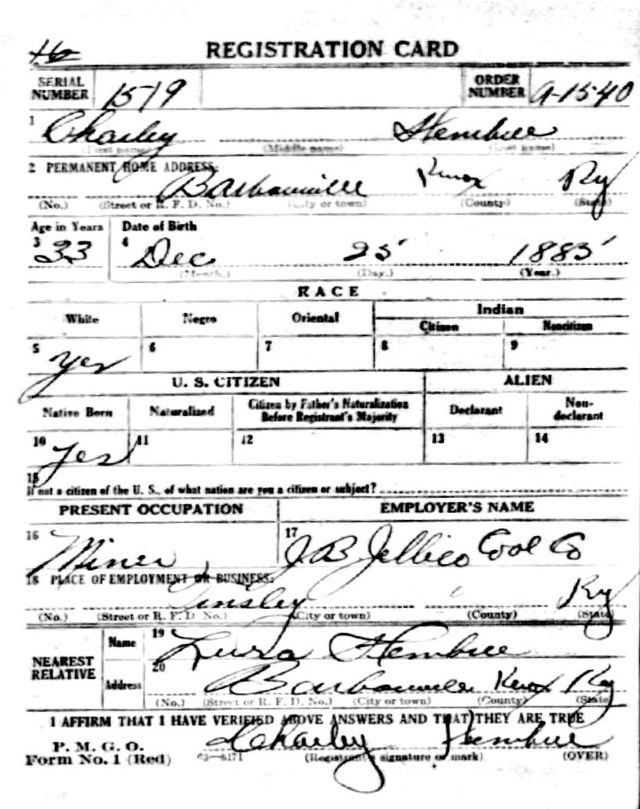 REGISTRATION CARD
SERIAL NUMBER 1519 ORDER NUMBER A-1540
1 Charley Hembree
(First name) (Middle name) (Last name)
2 PERMANENT HOME ADDRESS:
Barbourville Knox Ky
(No.) (Street or R. F. D. No.) (City or town) (County) (State)
Age in Years Date of Birth
3 33 4 Dec 25 1885
(Month.) (Day.) (Year.)
RACE
White Negro Oriental Indian
Citizen Noncitizen
5 Yes 6 7 8 9
U. S. CITIZEN ALIEN
Native Born Naturalized Citizen by Father's Naturalization Before Registrant's Majority Declarant Non-declarant
10 Yes 11 12 13 14
15
If not a citizen of the U. S., of what nation are you a citizen or subject?
PRESENT OCCUPATION EMPLOYER'S NAME
16 Miner 17 J B Jellico Coal Co
18 PLACE OF EMPLOYMENT OR BUSINESS:
Tinsley Ky
(No.) (Street or R. F. D. No.) (City or town) (County) (State)
NEAREST RELATIVE
Name 19 Lura Hembree
Address 20 Barbourville Knox Ky
(No.) (Street or R. F. D. No.) (City or town) (County) (State)
I AFFIRM THAT I HAVE VERIFIED ABOVE ANSWERS AND THAT THEY ARE TRUE
P. M. G. O.
Form No. 1 (Red) 03-6171 Charley Hembree
(Registrant's signature or mark) (OVER)